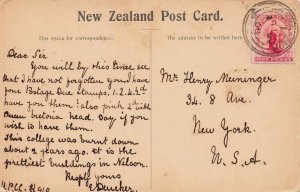 New Zealand Post Card.
This space for correspondence.
The address to be written here
Dear Sir
You will by this time see
that I have not forgotten you I have
your Postage Due stamps, 1.2.2.
have you them? Also pink 2
Queen Victoria head. Say if you
wish to have them.
This college was burnt down
about 2 years ago. It is the
prettiest buildings in Nelson.
Reply yours
Mr Henry Meininger
34. 8 Ave.
New York.
U. S. A.
ONE PENNY